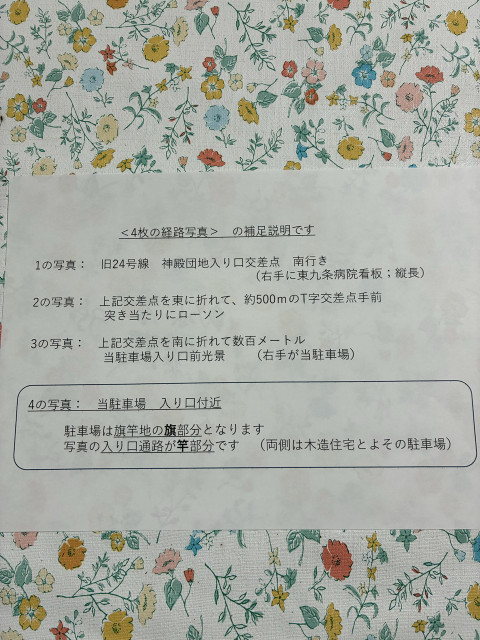 <4枚の経路写真> の補足説明です
1の写真: 旧24号線 神殿団地入り口交差点 南行き
(右手に東九条病院看板;縦長)
2の写真: 上記交差点を東に折れて、約500mのT字交差点手前
突き当たりにローソン
3の写真: 上記交差点を南に折れて数百メートル
当駐車場入り口前光景 (右手が当駐車場)
4の写真: 当駐車場 入り口付近
駐車場は旗竿地の旗部分となります
写真の入り口通路が竿部分です (両側は木造住宅とよその駐車場)